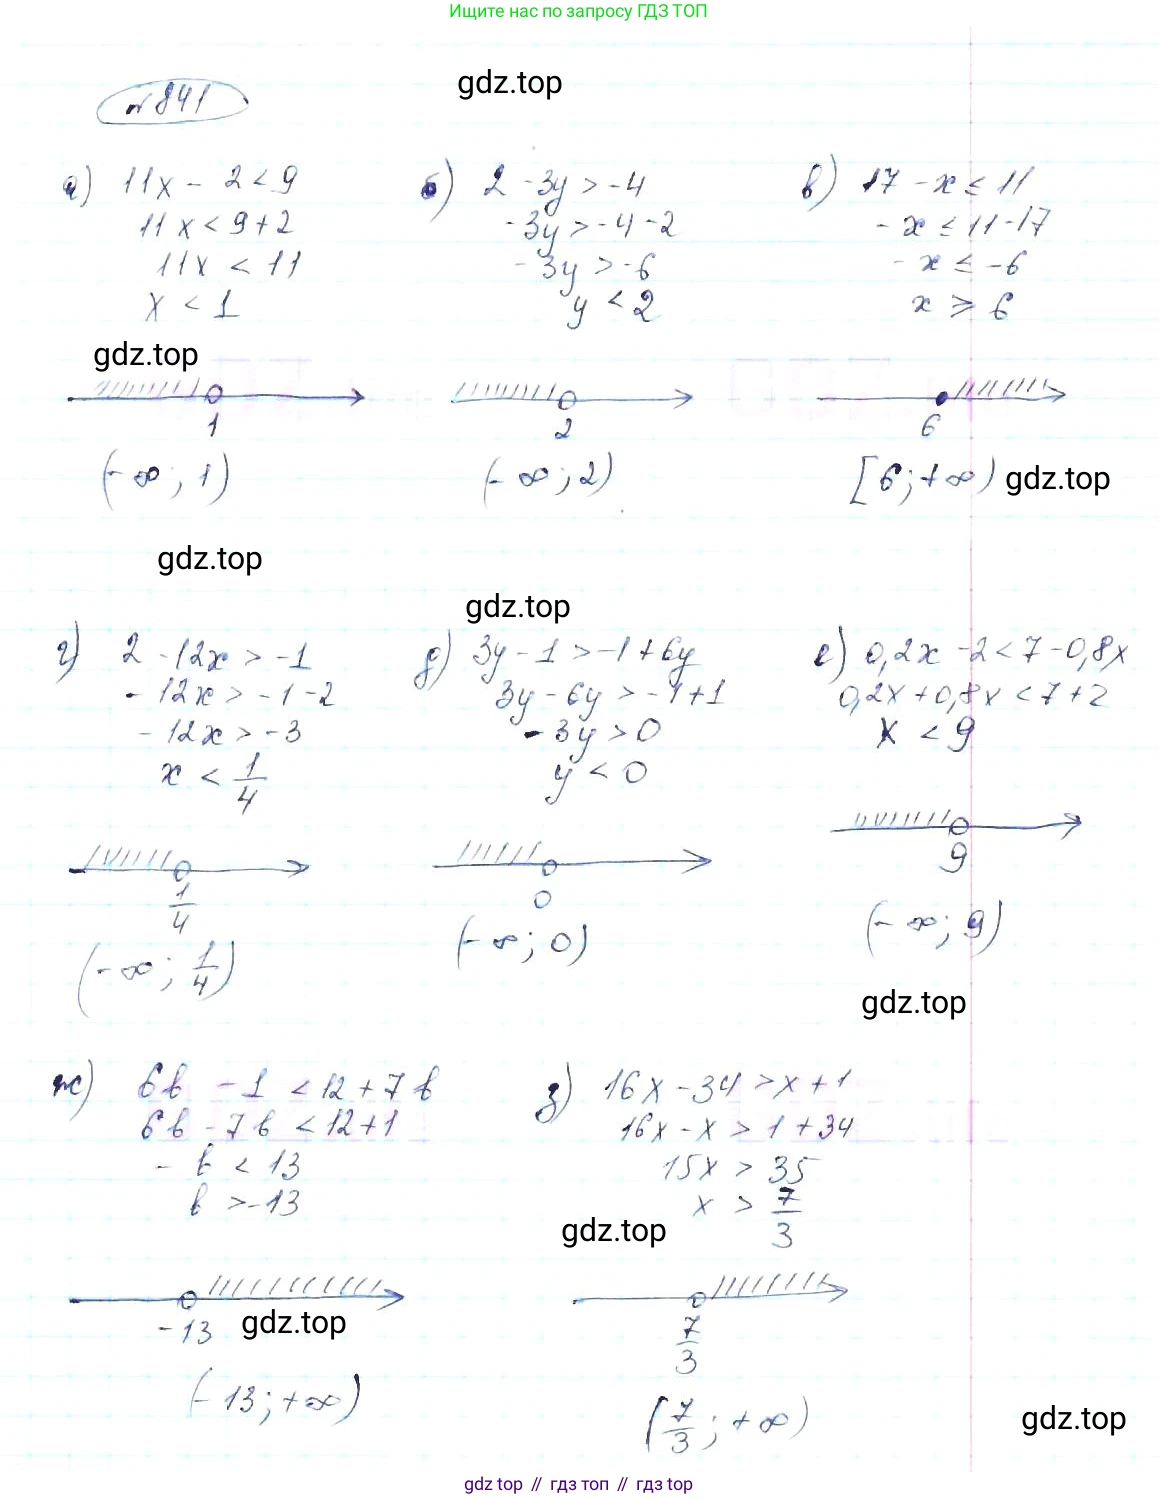 Ищите нас по запросу ГДЗ ТОП
gdz.top
№841
а) 11x - 2 < 9
11x < 9 + 2
11x < 11
x < 1
gdz.top
1
(-∞; 1)
б) 2 - 3y > -4
-3y > -4 - 2
-3y > -6
y < 2
2
(-∞; 2)
в) 17 - x ≤ 11
-x ≤ 11 - 17
-x ≤ -6
x ≥ 6
6
[6; +∞)
gdz.top
gdz.top
gdz.top
г) 2 - 12x > -1
-12x > -1 - 2
-12x > -3
x < 1/4
1/4
(-∞; 1/4)
д) 3y - 1 > -1 + 6y
3y - 6y > -1 + 1
-3y > 0
y < 0
0
(-∞; 0)
е) 0,2x - 2 < 7 - 0,8x
0,2x + 0,8x < 7 + 2
x < 9
9
(-∞; 9)
gdz.top
ж) 6b - 1 < 12 + 7b
6b - 7b < 12 + 1
-b < 13
b > -13
-13
gdz.top
(-13; +∞)
з) 16x - 34 > x + 1
16x - x > 1 + 34
15x > 35
x > 7/3
gdz.top
7/3
(7/3; +∞)
gdz.top
gdz top // гдз топ // гдз top